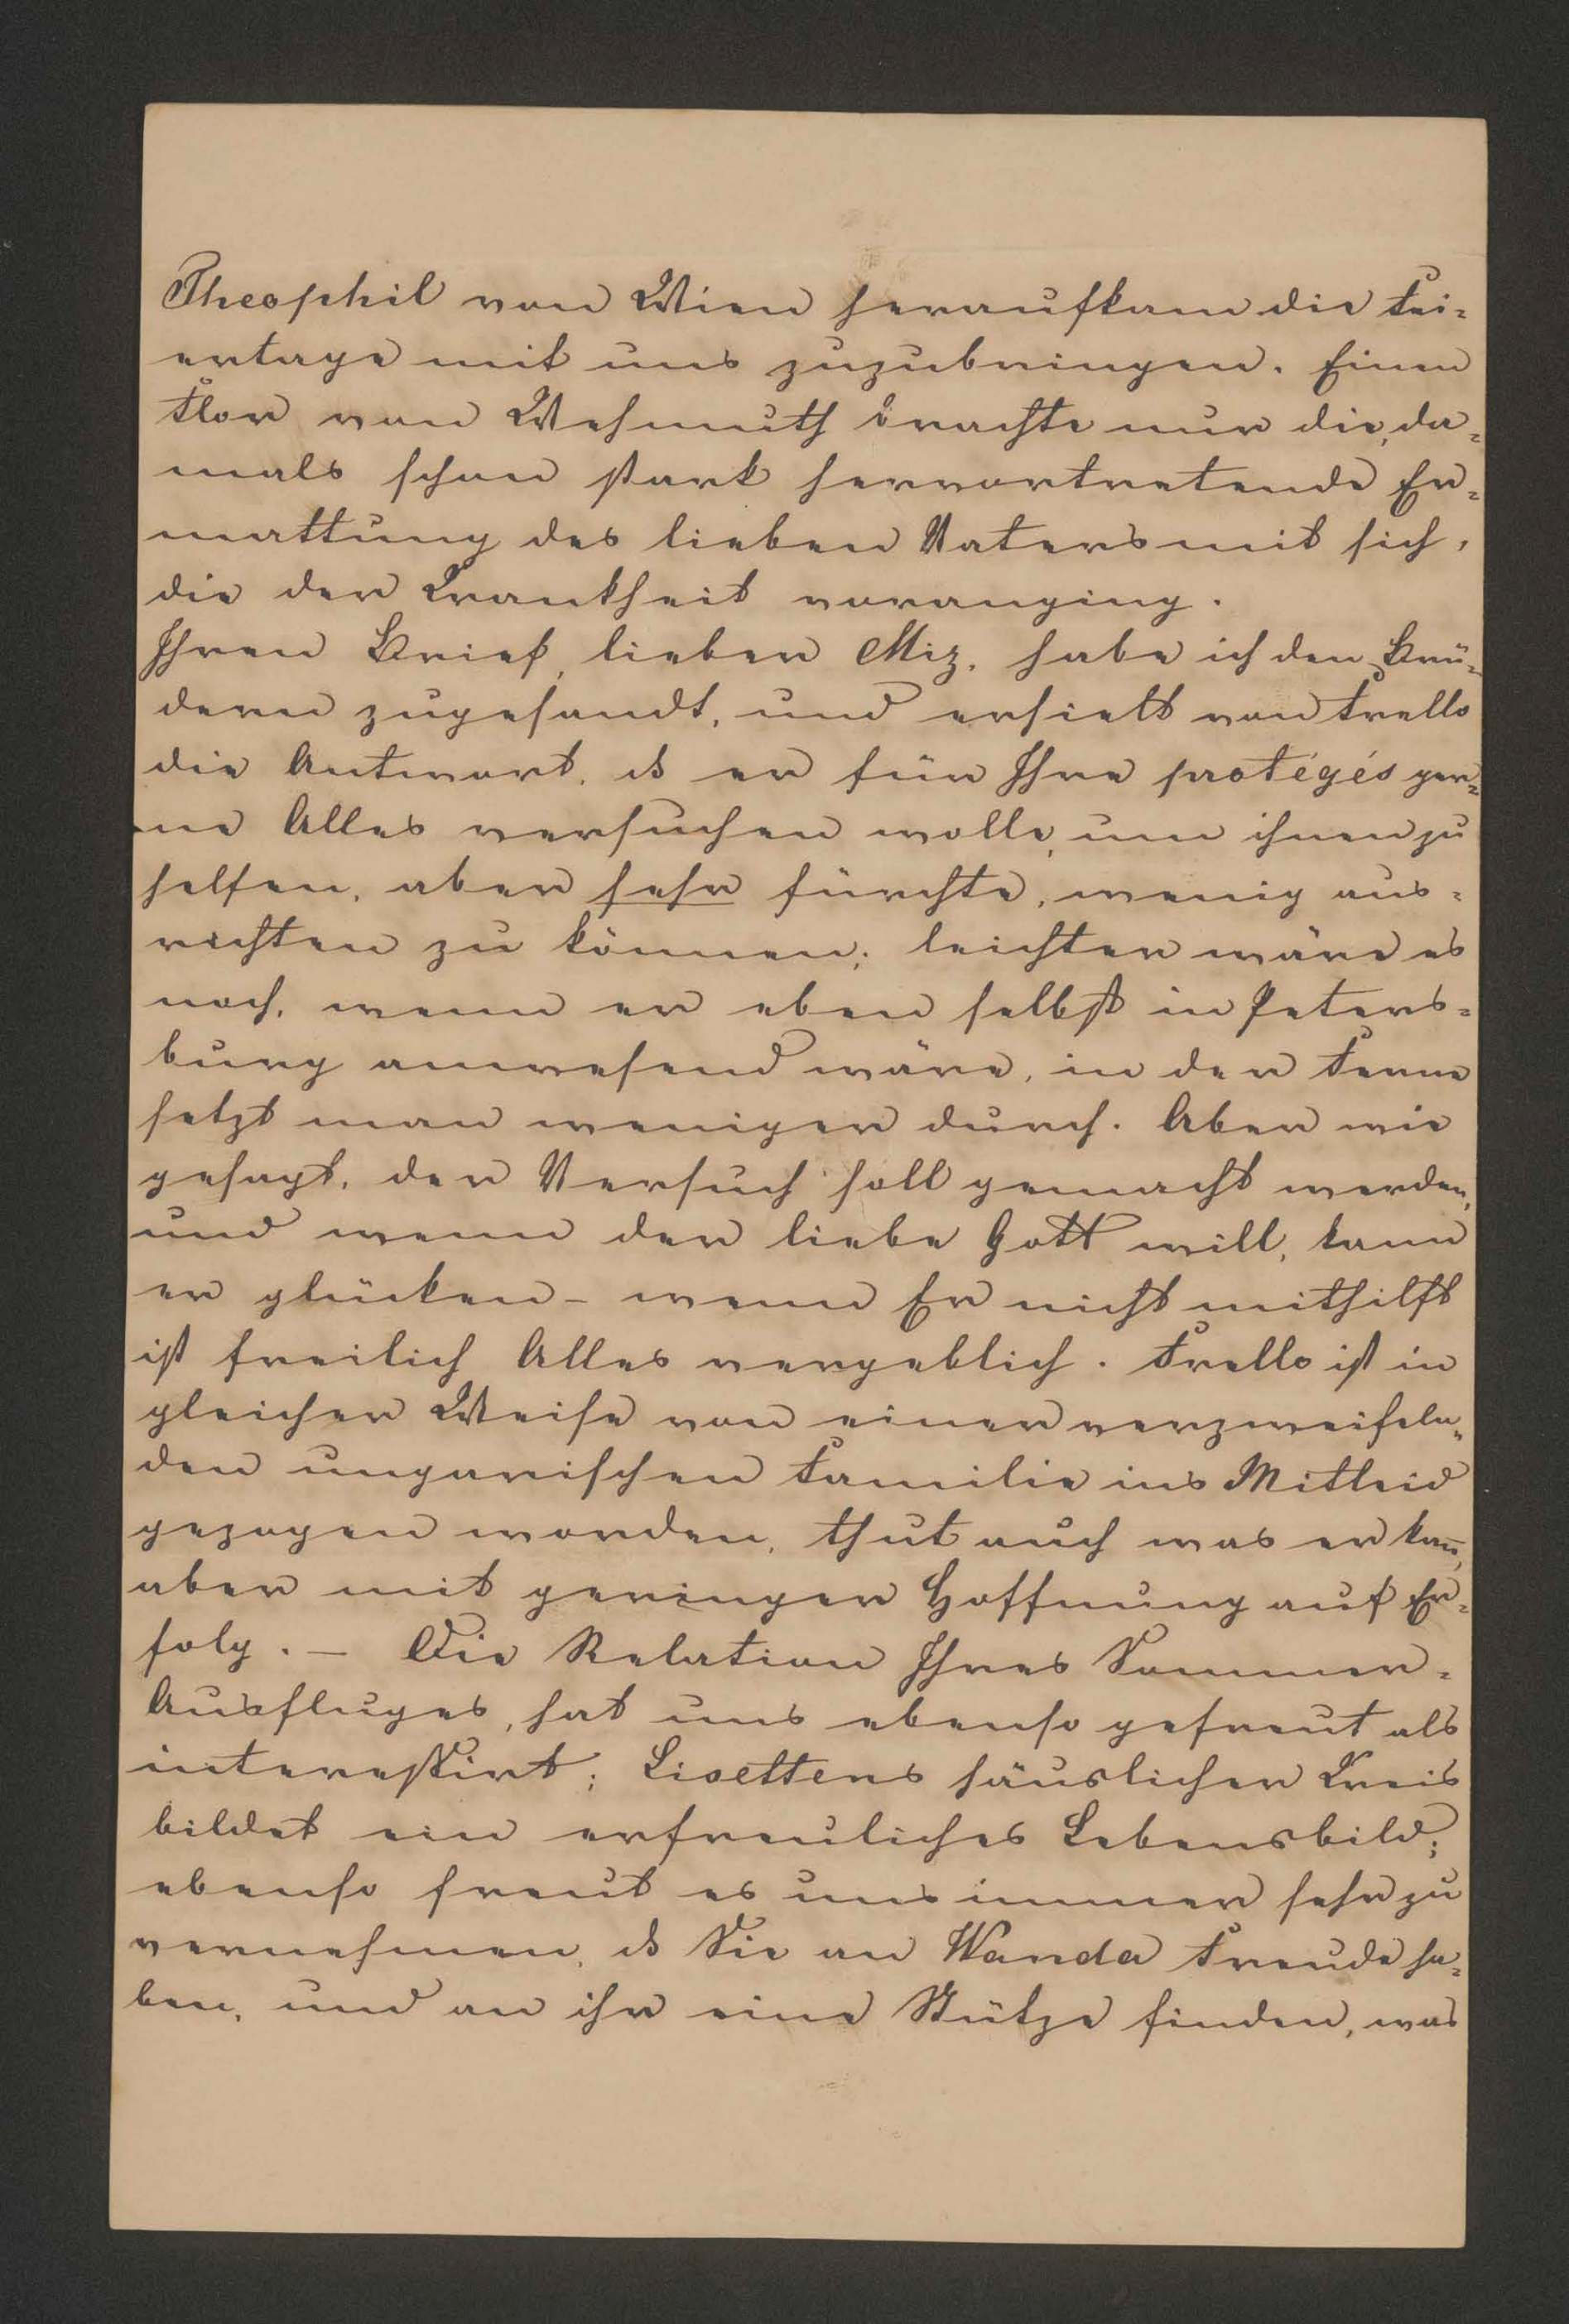 Theophil von Wien heraufkam die Fei=
ertage mit uns zuzubringen. Einen
Flor von Wehmuth brachte nur die, da=
mals schon stark hervortretende Er=
mattung des lieben Vaters mit sich,
die der Krankheit voranging.
Ihren Brief, lieber Miz, habe ich den Brü=
dern zugesandt, und erhielt von Frello
die Antwort, ds er für Ihre protégés ger=
ne Alles versuchen wolle, um ihnen zu
helfen, aber sehr fürchte, wenig aus=
richten zu können; leichter wäre es
noch, wenn er eben selbst in Peters=
burg anwesend wäre, in der Ferne
setzt man weniger durch. Aber wie
gesagt, der Versuch soll gemacht werden,
und wenn der liebe Gott will, kann
er glücken – wenn Er nicht mithilft
ist freilich Alles vergeblich. Frello ist in
gleicher Weise von einer verzweifeln=
den ungarischen Familie ins Mitleid
gezogen worden, thut auch was er kañ,
aber mit geringer Hoffnung auf Er=
folg. – Die Relation Ihres Sommer=
Ausfluges, hat uns ebenso gefreut als
interessirt; Lisettens häuslicher Kreis
bildet ein erfreuliches Lebensbild;
ebenso freut es uns immer sehr zu
vernehmen, ds Sie an Wanda Freude ha=
ben, und an ihr eine Stütze finden, was